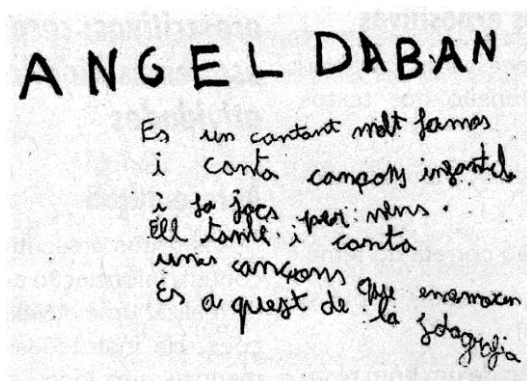 ANGEL DABAN
Es un cantant molt famos
i canta cançons infantils
i fa jocs per nens.
Ell tamé i canta
unes cançons que enamoren
És a quest de la fotografia